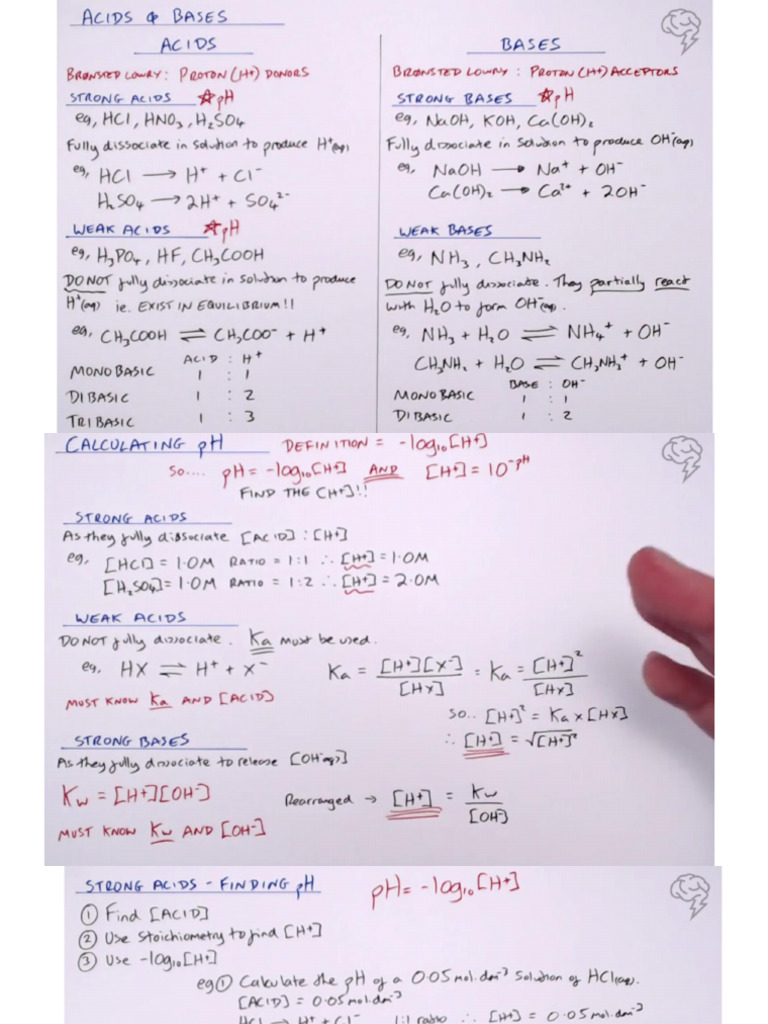 ACIDS & BASES
ACIDS
BRØNSTED LOWRY : PROTON (H+) DONORS
STRONG ACIDS ☆pH
eg, HCl, HNO₃, H₂SO₄
Fully dissociate in solution to produce H⁺(aq)
eg, HCl ⟶ H⁺ + Cl⁻
H₂SO₄ ⟶ 2H⁺ + SO₄²⁻
WEAK ACIDS ☆pH
eg, H₃PO₄, HF, CH₃COOH
DO NOT fully dissociate in solution to produce
H⁺(aq) ie. EXIST IN EQUILIBRIUM!!
eg, CH₃COOH ⇌ CH₃COO⁻ + H⁺
ACID : H⁺
MONOBASIC 1 : 1
DIBASIC 1 : 2
TRIBASIC 1 : 3
BASES
BRØNSTED LOWRY : PROTON (H+) ACCEPTORS
STRONG BASES ☆pH
eg, NaOH, KOH, Ca(OH)₂
Fully dissociate in solution to produce OH⁻(aq)
eg, NaOH ⟶ Na⁺ + OH⁻
Ca(OH)₂ ⟶ Ca²⁺ + 2OH⁻
WEAK BASES
eg, NH₃, CH₃NH₂
DO NOT fully dissociate. They partially react
with H₂O to form OH⁻(aq).
eg, NH₃ + H₂O ⇌ NH₄⁺ + OH⁻
CH₃NH₂ + H₂O ⇌ CH₃NH₃⁺ + OH⁻
BASE : OH⁻
MONOBASIC 1 : 1
DIBASIC 1 : 2
CALCULATING pH DEFINITION = -log₁₀[H+]
SO.... pH = -log₁₀[H+] AND [H+] = 10^-pH
FIND THE [H+]!!
STRONG ACIDS
As they fully dissociate [ACID] : [H+]
eg, [HCl] = 1.0M RATIO = 1:1 ∴ [H+] = 1.0M
[H₂SO₄] = 1.0M RATIO = 1:2 ∴ [H+] = 2.0M
WEAK ACIDS
DO NOT fully dissociate. Ka must be used.
eg, HX ⇌ H⁺ + X⁻ Ka = [H+][X-]/[HX] = Ka = [H+]²/[HX]
MUST KNOW Ka AND [ACID]
SO.. [H+]² = Ka x [HX]
∴ [H+] = √[H+]²
STRONG BASES
As they fully dissociate to release [OH⁻(aq)]
Kw = [H+][OH-] Rearranged → [H+] = Kw/[OH-]
MUST KNOW Kw AND [OH-]
STRONG ACIDS - FINDING pH pH = -log₁₀[H+]
① Find [ACID]
② Use Stoichiometry to find [H+]
③ Use -log₁₀[H+]
eg① Calculate the pH of a 0.05mol.dm⁻³ solution of HCl(aq).
[ACID] = 0.05mol.dm⁻³
HCl → H⁺ + Cl⁻ 1:1 ratio ∴ [H+] = 0.05mol.dm⁻³